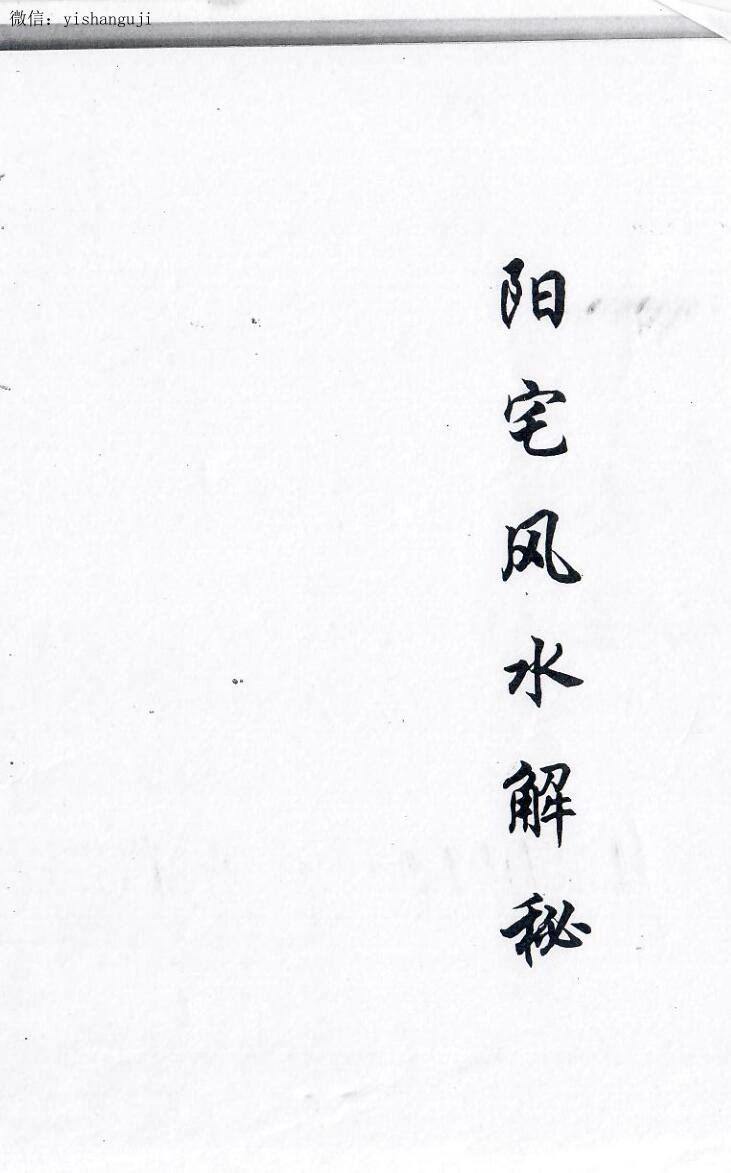 微信: yishanguji
阳宅风水解秘